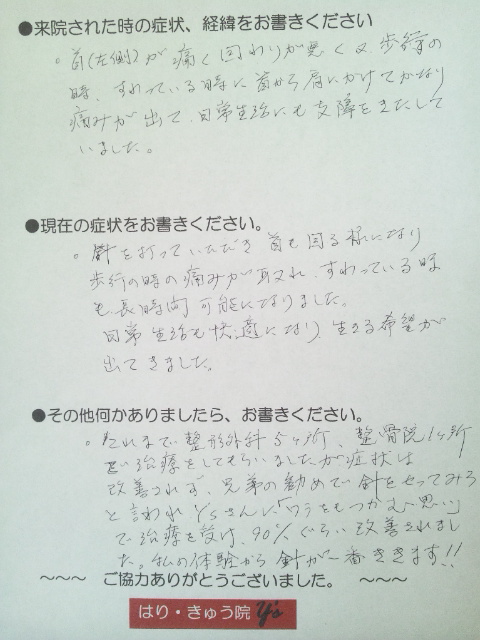 ●来院された時の症状、経緯をお書きください
。首(左側)が痛く回わりが悪く又歩行の
時、すわっている時に首から肩にかけてかなり
痛みが出て、日常生活にも支障をきたして
いました。
●現在の症状をお書きください。
。針を打っていただき首も回る様になり
歩行の時の痛みが取れ、すわっている時
も長時間可能になりました。
日常生活も快適になり、生きる希望が
出てきました。
●その他何かありましたら、お書きください。
。これまで整形外科5ヶ所、整骨院1ヶ所
で治療をしてもらいましたが症状は
改善されず、兄弟の勧めで針をやってみろ
と言われY'sさんに「ワラをもつかむ思い」
で治療を受け、90%ぐらい改善されまし
た。私の体験から針が一番ききます!!
~~~ ご協力ありがとうございました。 ~~~
はり・きゅう院 Y's